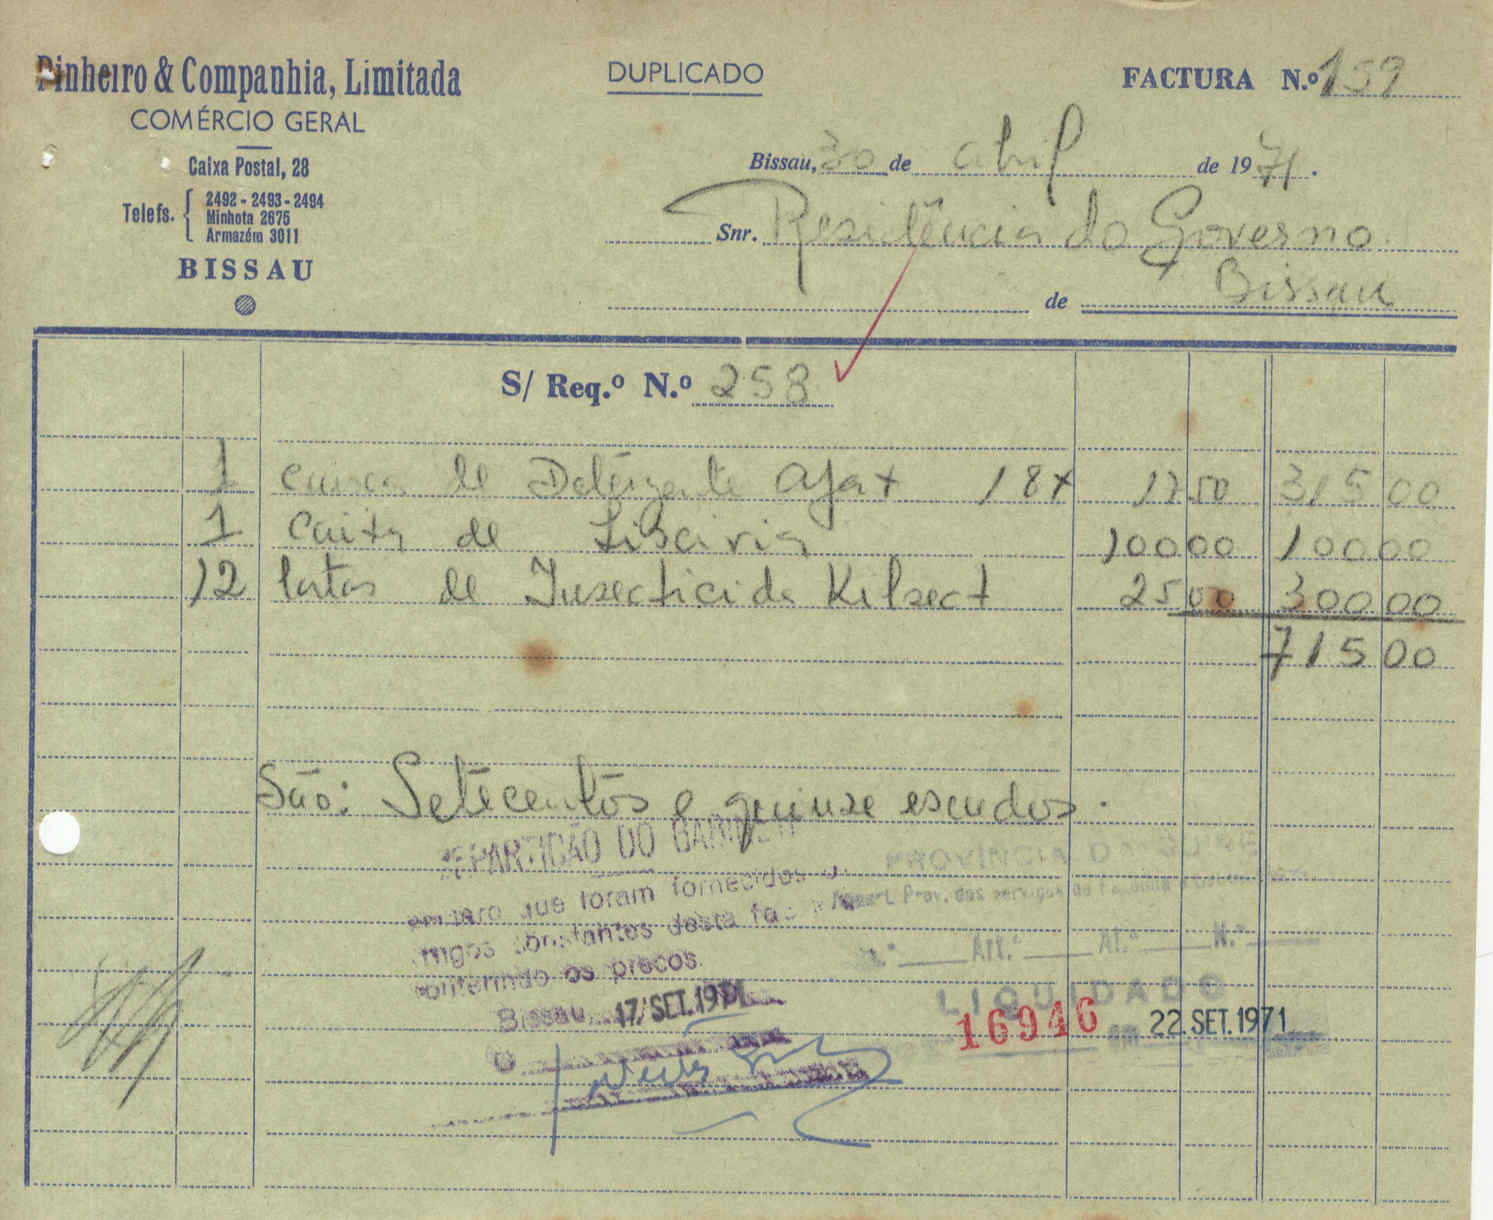 Pinheiro & Companhia, Limitada
COMÉRCIO GERAL
Caixa Postal, 28
Telefs. 2492 - 2493 - 2494
Minhota 2675
Armazém 3011
BISSAU
DUPLICADO
FACTURA N.º 159
Bissau, 30 de abril de 1971.
Snr. Residência do Governo
de Bissau
S/ Req.º N.º 258
1 caixa de Detergente Ajax 18x 17 50 315 00
1 Caixa de Lisivia 100 00 100 00
12 latas de Insecticida Kilsect 25 00 300 00
715 00
São: Setecentos e quinze escudos.
REPARTIÇÃO DO GABINETE
que foram fornecidos os
artigos constantes desta
conferindo os preços.
Bissau, 17 SET. 1971
O
PROVINCIA DA GUINE
Repart. Prov. dos serviços de
Art.º Al.º N.º
LIQUIDADO
16946 em 22. SET. 1971